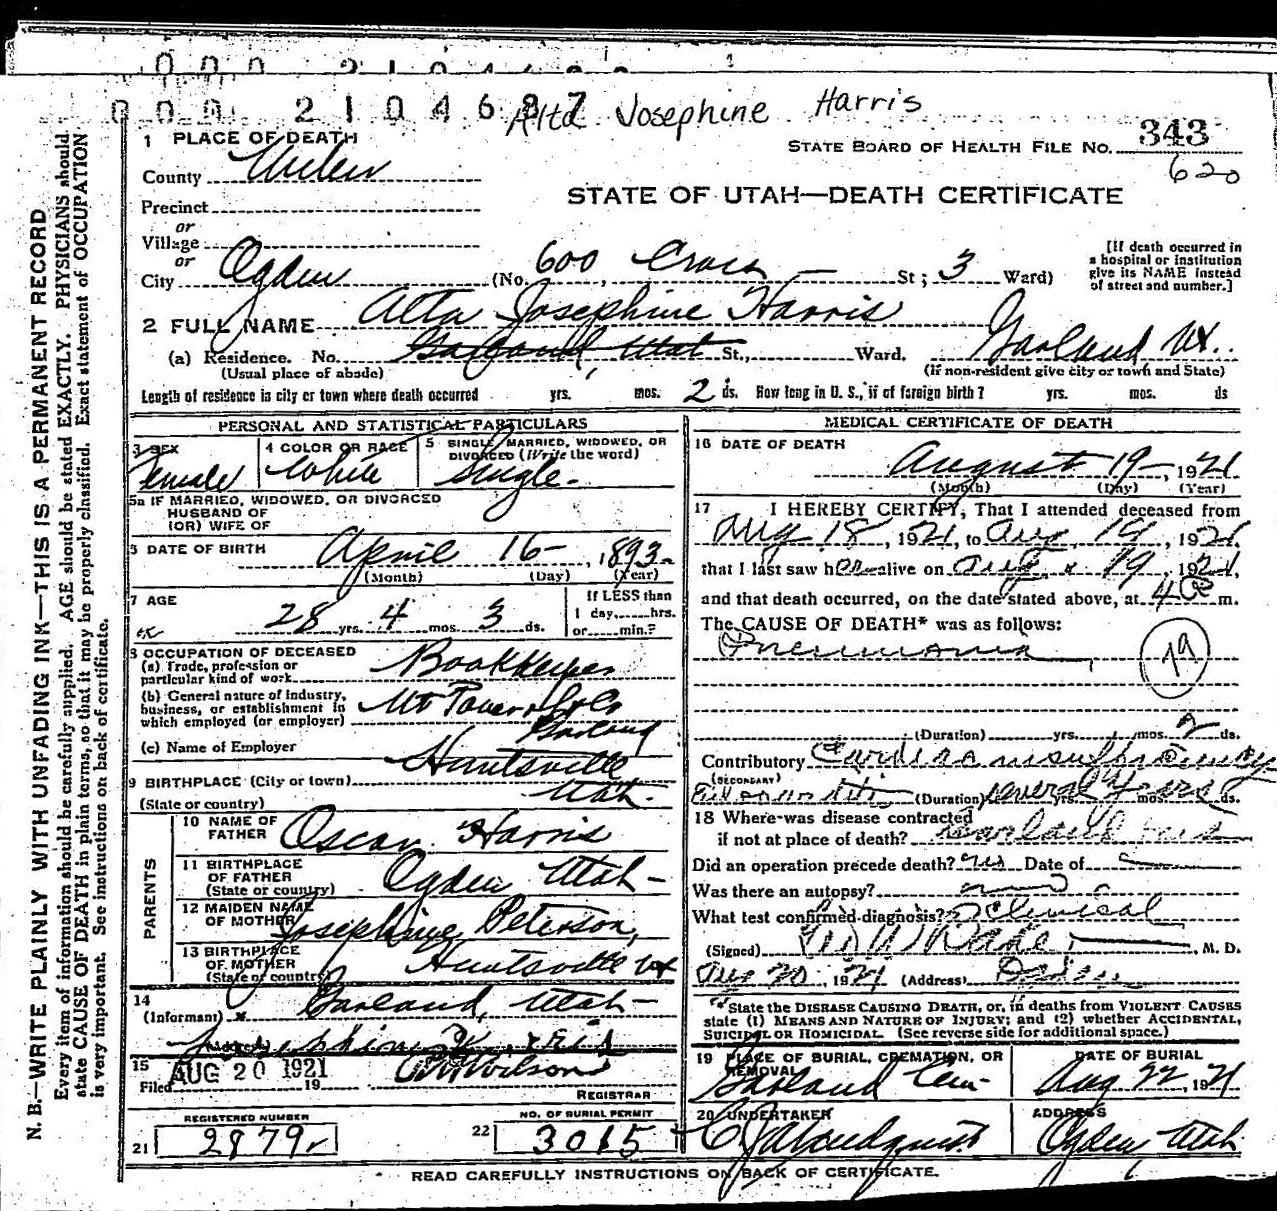 000 2104687
Alta Josephine Harris
1 PLACE OF DEATH
STATE BOARD OF HEALTH FILE No. 343
620
County Weber
STATE OF UTAH—DEATH CERTIFICATE
Precinct
or
Village
or
City Ogden (No. 600 Cross St; 3 Ward)
[If death occurred in a hospital or institution give its NAME instead of street and number.]
2 FULL NAME Alta Josephine Harris
(a) Residence. No. Garland, Utah St., Ward. Garland Ut.
(Usual place of abode) (If non-resident give city or town and State)
Length of residence in city or town where death occurred yrs. mos. 2 ds. How long in U. S., if of foreign birth? yrs. mos. ds
PERSONAL AND STATISTICAL PARTICULARS
3 SEX Female
4 COLOR OR RACE White
5 SINGLE, MARRIED, WIDOWED, OR DIVORCED (Write the word) Single-
5a IF MARRIED, WIDOWED, OR DIVORCED
HUSBAND OF
(OR) WIFE OF
6 DATE OF BIRTH April 16-, 1893-
(Month) (Day) (Year)
7 AGE 28 yrs. 4 mos. 3 ds.
If LESS than
1 day, hrs.
or min.?
8 OCCUPATION OF DECEASED
(a) Trade, profession or particular kind of work Bookkeeper
(b) General nature of industry, business, or establishment in which employed (or employer) Ut Power & L Co
(c) Name of Employer Garland
9 BIRTHPLACE (City or town) Huntsville
(State or country) Utah.
PARENTS
10 NAME OF FATHER Oscar Harris
11 BIRTHPLACE OF FATHER (State or country) Ogden Utah-
12 MAIDEN NAME OF MOTHER Josephine Peterson,
13 BIRTHPLACE OF MOTHER (State or country) Huntsville Ut
14
(Informant) Garland, Utah-
(Address)
15
Filed AUG 20 1921 19 Wilson
REGISTRAR
REGISTERED NUMBER
21 2879
NO. OF BURIAL PERMIT
22 3015
MEDICAL CERTIFICATE OF DEATH
16 DATE OF DEATH
August 19-, 1921
(Month) (Day) (Year)
17 I HEREBY CERTIFY, That I attended deceased from
Aug 18, 1921, to Aug, 19, 1921,
that I last saw her alive on Aug 19, 1921,
and that death occurred, on the date stated above, at m.
The CAUSE OF DEATH* was as follows:
Pneumonia
79
(Duration) yrs. mos. 2 ds.
Contributory Cardiac insufficiency
(SECONDARY)
(Duration) several years yrs. mos. ds.
18 Where was disease contracted
if not at place of death?
Did an operation precede death? no Date of
Was there an autopsy? no
What test confirmed diagnosis? Clinical
(Signed) M. D.
Aug 20, 1921 (Address) Ogden
*State the DISEASE CAUSING DEATH, or, in deaths from VIOLENT CAUSES
state (1) MEANS AND NATURE OF INJURY; and (2) whether ACCIDENTAL,
SUICIDAL OR HOMICIDAL. (See reverse side for additional space.)
19 PLACE OF BURIAL, CREMATION, OR REMOVAL Garland Cem-
DATE OF BURIAL Aug 22, 1921
20 UNDERTAKER
ADDRESS Ogden Utah
READ CAREFULLY INSTRUCTIONS ON BACK OF CERTIFICATE.
N. B.—WRITE PLAINLY WITH UNFADING INK—THIS IS A PERMANENT RECORD
Every item of information should be carefully supplied. AGE should be stated EXACTLY. PHYSICIANS should
state CAUSE OF DEATH in plain terms, so that it may be properly classified. Exact statement of OCCUPATION
is very important. See instructions on back of certificate.